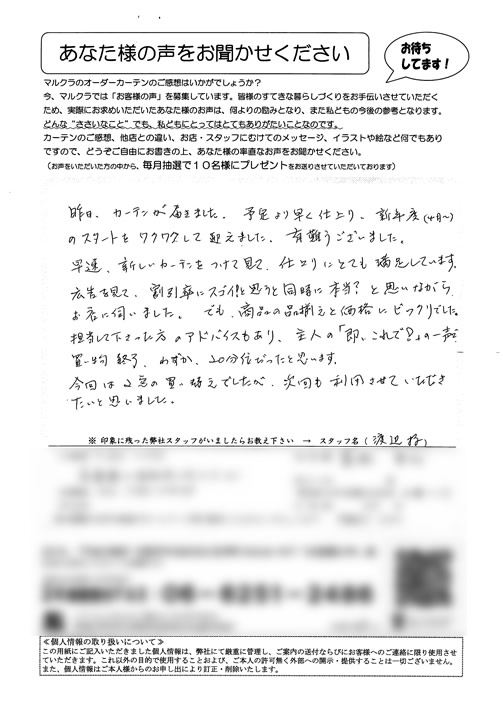 あなた様の声をお聞かせください
お待ち
してます!
マルクラのオーダーカーテンのご感想はいかがでしょうか?
今、マルクラでは「お客様の声」を募集しています。皆様のすてきな暮らしづくりをお手伝いさせていただく
ため、実際にお求めいただいたあなた様のお声は、何よりの励みとなり、また私どもの今後の参考となります。
どんな“ささいなこと”でも、私どもにとってはとてもありがたいことなのです。
カーテンのご感想、他店との違い、お店・スタッフにむけてのメッセージ、イラストや絵など何でもあり
ですので、どうぞご自由にお書きの上、あなた様の率直なお声をお聞かせください。
(お声をいただいた方の中から、毎月抽選で10名様にプレゼントをお送りさせていただいております)
昨日、カーテンが届きました。予定より早く仕上り、新年度(4月〜)
のスタートをワクワクして迎えました。有難うございました。
早速、新しいカーテンをつけて見て、仕上りにとても満足しています。
広告を見て、割引率にスゴイ!と思うと同時に本当?と思いながら
お店に伺いました。でも、商品の品揃えと価格にビックリでした。
担当して下さった方のアドバイスもあり、主人の「即、これで!」の一声
買い物終了、わずか、20分位だったと思います。
今回は2窓の買い替えでしたが、次回も利用させていただき
たいと思いました。
※ 印象に残った弊社スタッフがいましたらお教え下さい → スタッフ名(渡辺 様)
≪個人情報の取り扱いについて≫
この用紙にご記入いただきました個人情報は、弊社にて厳重に管理し、ご案内の送付ならびにお客様へのご連絡に限り使用させ
ていただきます。これ以外の目的で使用することおよび、ご本人の許可無く外部への開示・提供することは一切ございません。
また、個人情報はご本人様からのお申し出により訂正・削除いたします。